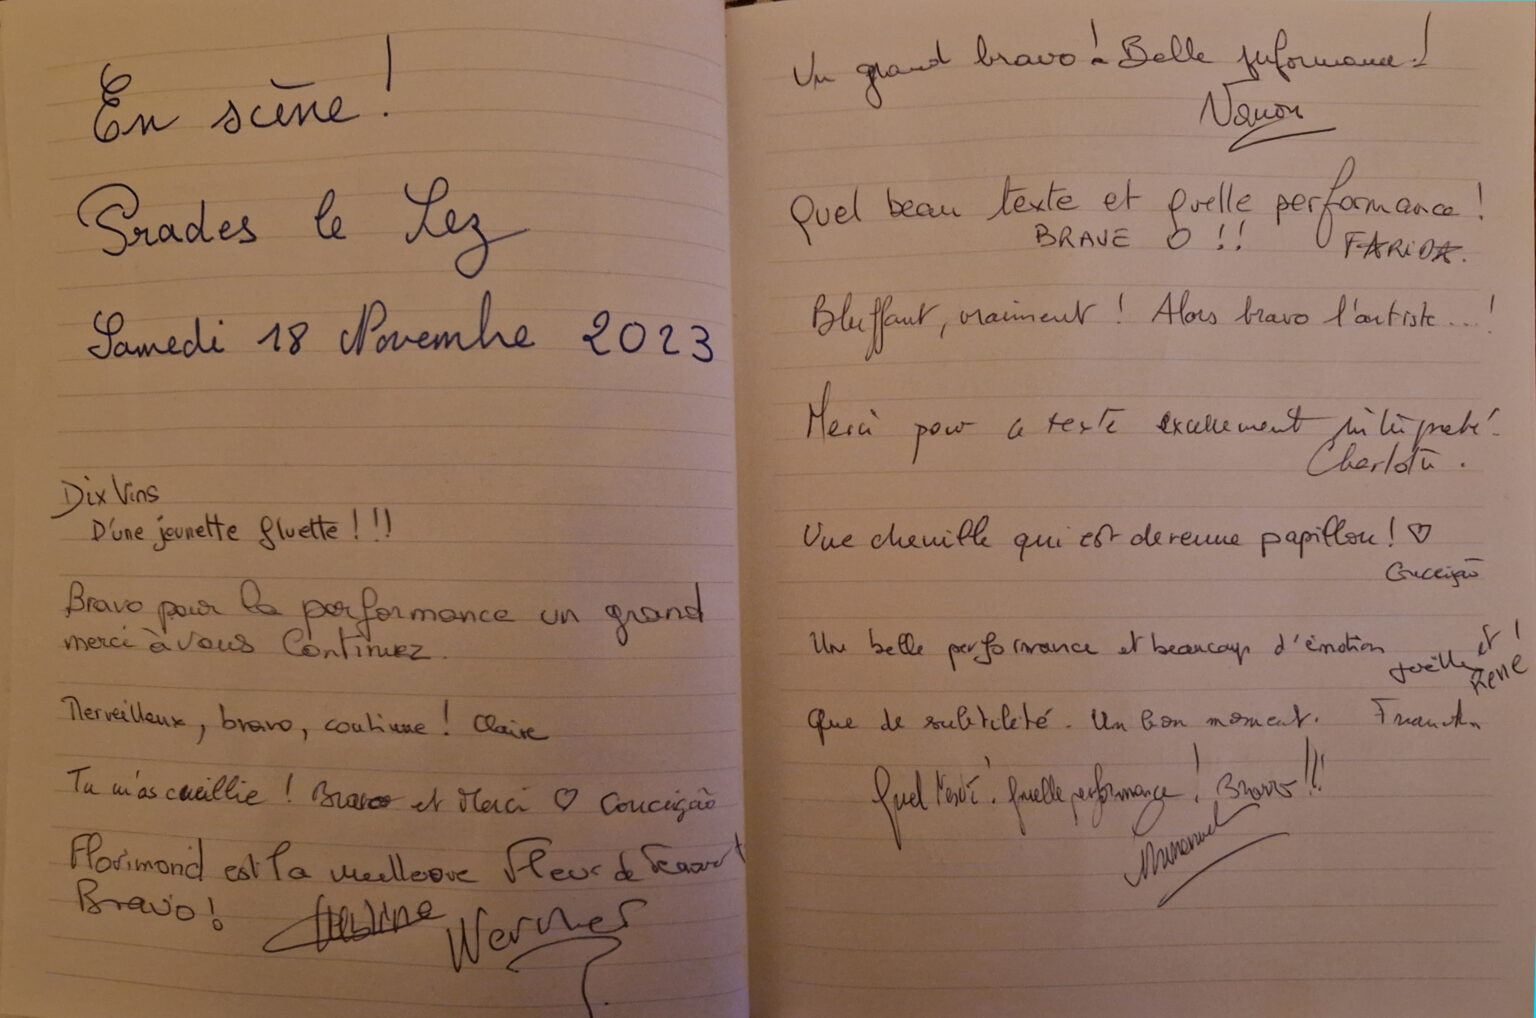 En scène !
Prades le Lez
Samedi 18 Novembre 2023
Dix Vins
D'une jeunette fluette ! !!
Bravo pour la performance un grand
merci à vous Continuez.
Merveilleux, bravo, continue ! Claire
Tu m'as cueillie ! Bravo et Merci ♡ Conceição
Florimond est la meilleure Fleur de
Bravo !
Werner
Un grand bravo ! Belle performance !
Quel beau texte et quelle performance !
BRAVE O !! FARIDA.
Bluffant, vraiment ! Alors bravo l'artiste...!
Merci pour ce texte excellement interprété.
Charlotte.
Une chenille qui est devenue papillon ! ♡
Conceição
Une belle performance et beaucoup d'émotion !
Joëlle et René
Que de subtilité. Un bon moment.
Quel texte ! Quelle performance ! Bravo !!!
Emmanuel